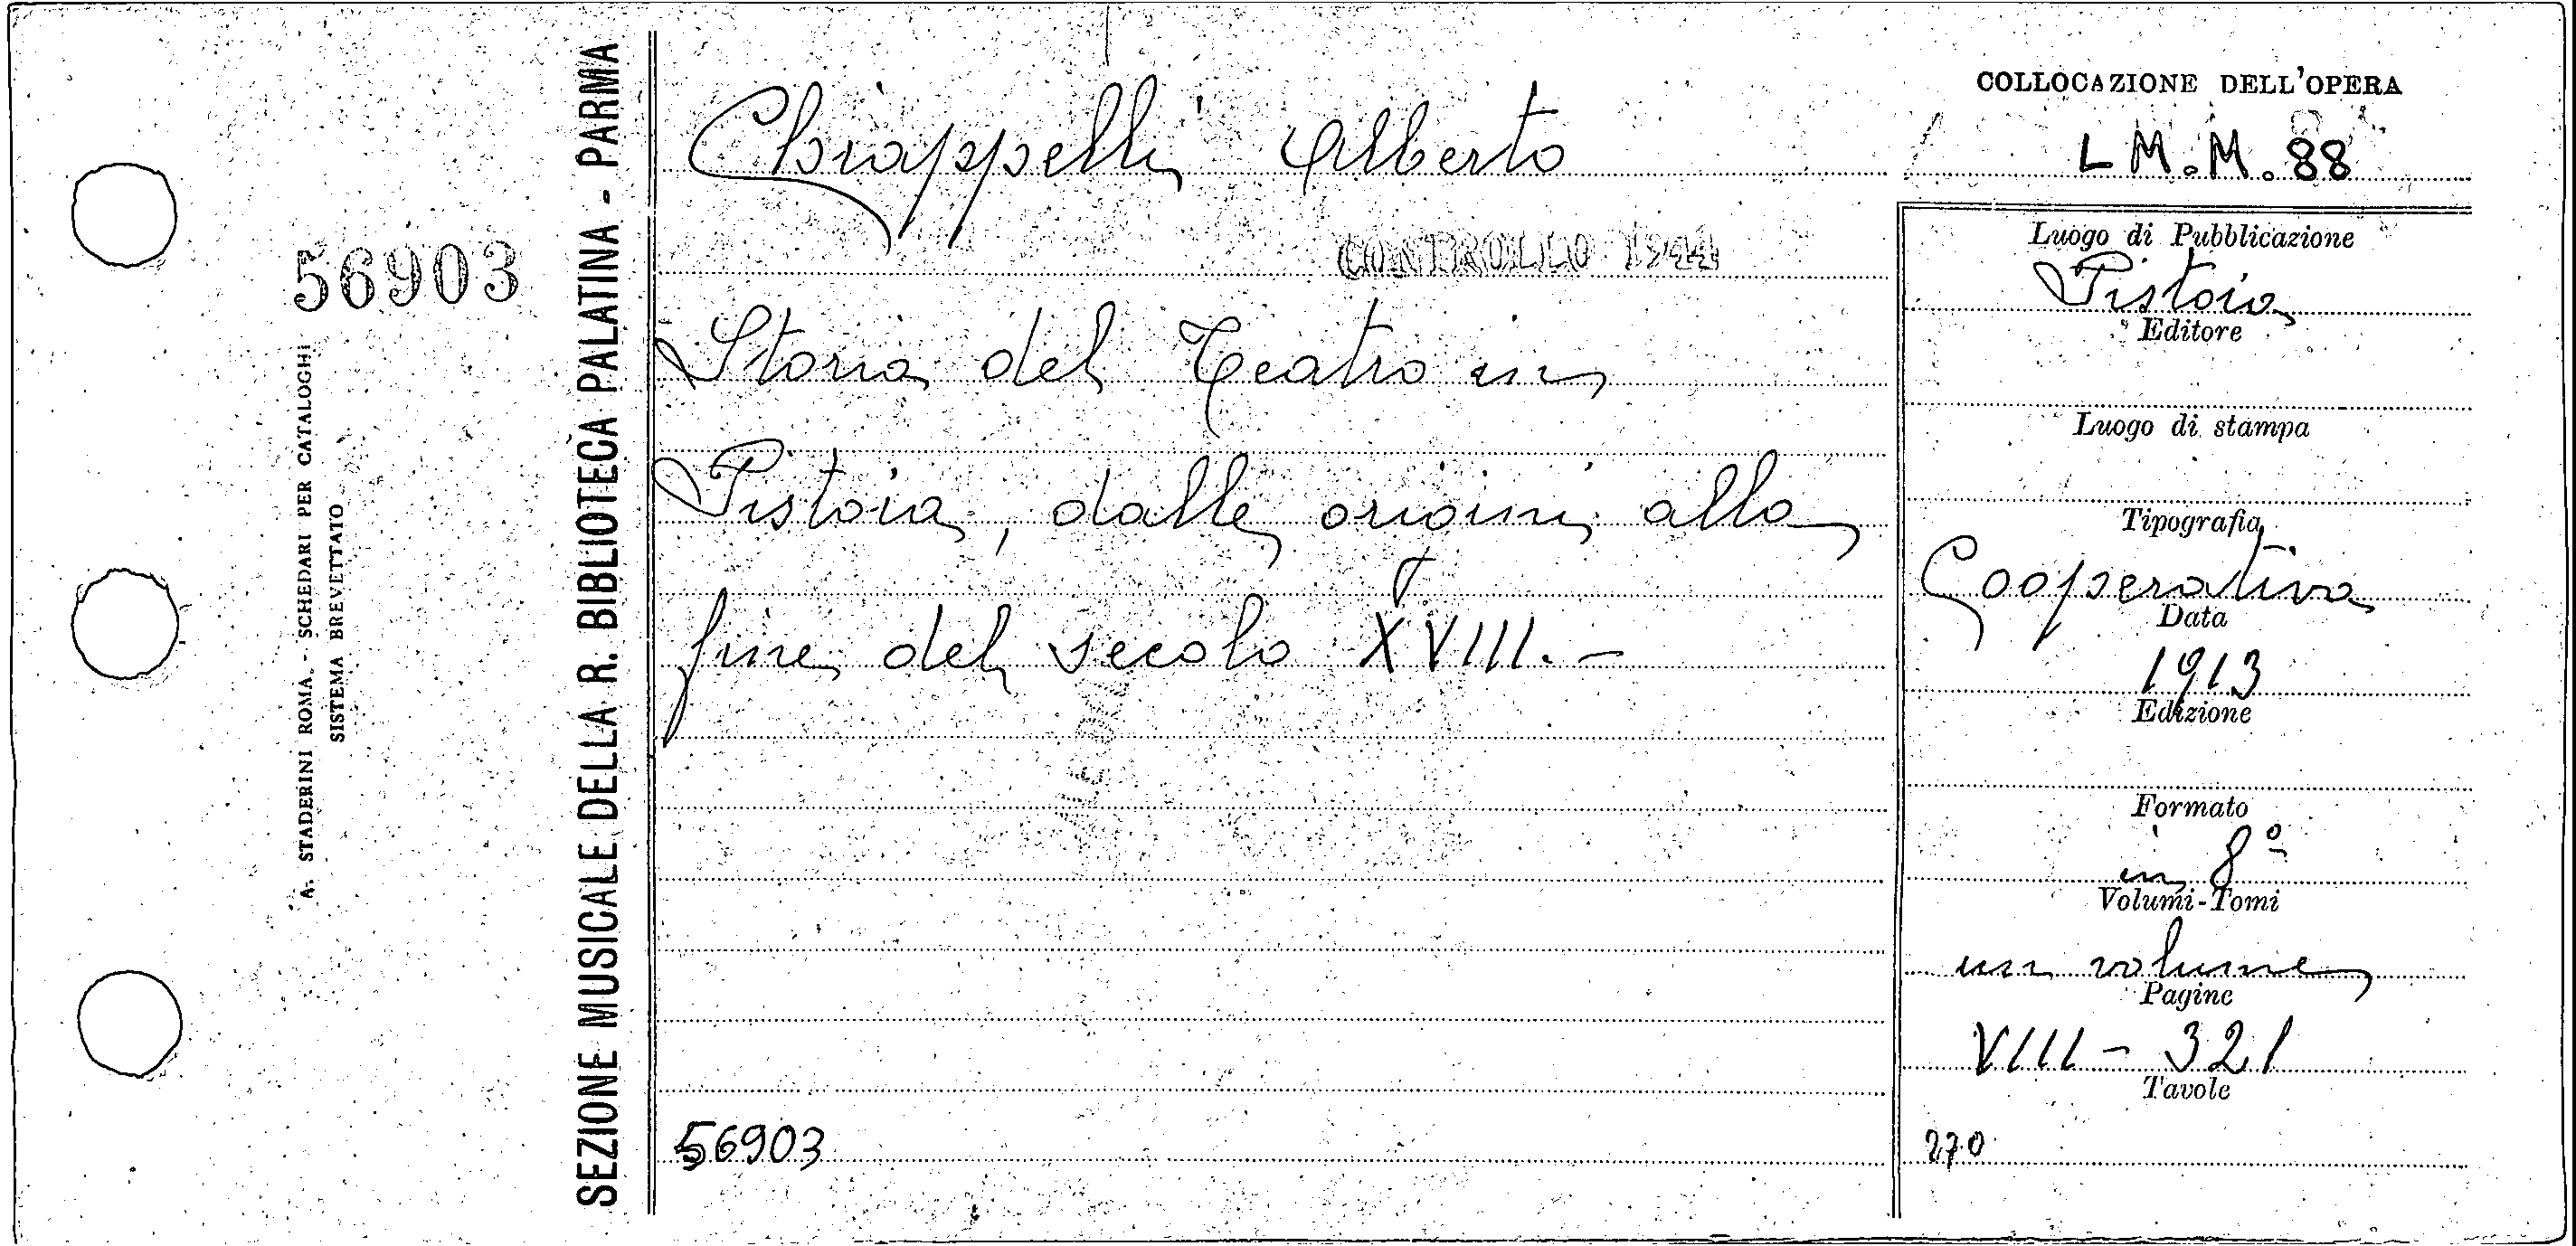 56903
A. STADERINI ROMA - SCHEDARI PER CATALOGHI
SISTEMA BREVETTATO
SEZIONE MUSICALE DELLA R. BIBLIOTECA PALATINA - PARMA
Chiappelli Alberto
CONTROLLO 1944
Storia del Teatro in
Pistoia, dalle origini alla
fine del secolo XVIII. -
56903
COLLOCAZIONE DELL'OPERA
L M. M. 88
Luogo di Pubblicazione
Pistoia
Editore
Luogo di stampa
Tipografia
Cooperativa
Data
1913
Edizione
Formato
in 8º
Volumi-Tomi
un volume
Pagine
VIII - 321
Tavole
270